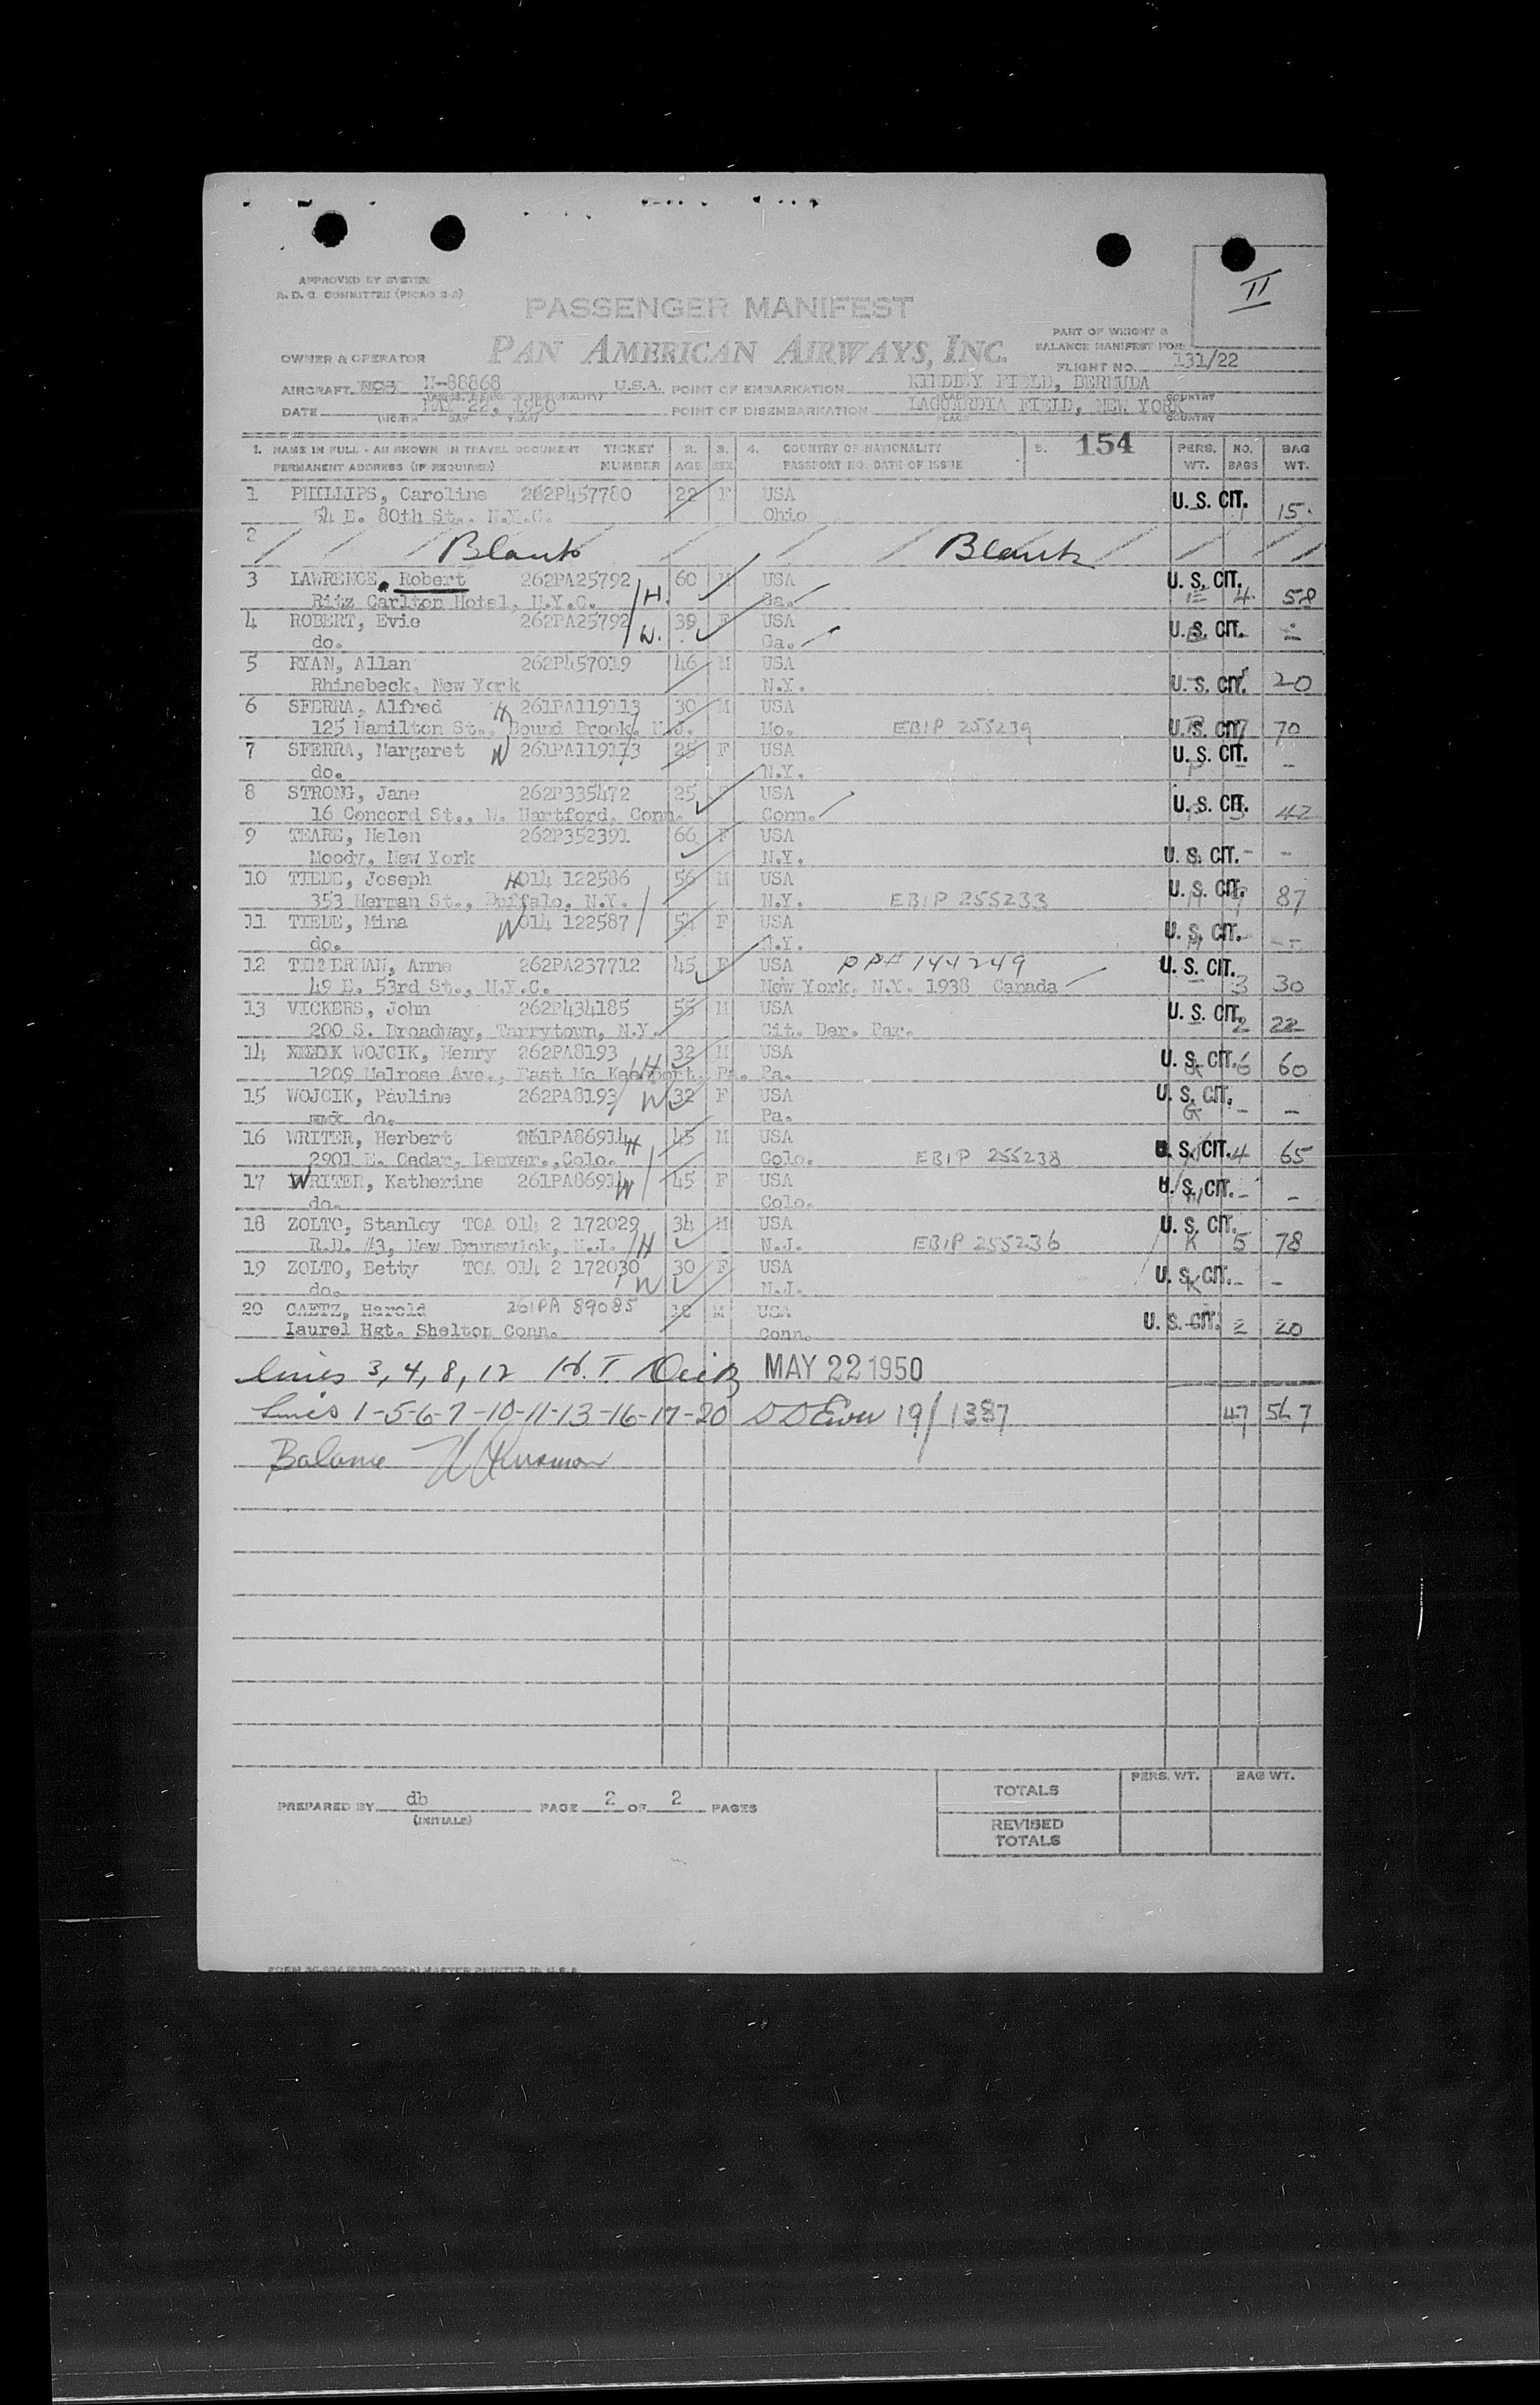 II
APPROVED BY SYSTEM
A. D. C. COMMITTEE (PICAO 2-2)
PASSENGER MANIFEST
PAN AMERICAN AIRWAYS, INC.
PART OF WEIGHT &
BALANCE MANIFEST FOR
OWNER & OPERATOR
FLIGHT NO. 131/22
AIRCRAFT N-88868 U.S.A. POINT OF EMBARKATION KINDLEY FIELD, BERMUDA
DATE MAY 22, 1950 POINT OF DISEMBARKATION LAGUARDIA FIELD, NEW YORK
(MONTH DAY YEAR) PLACE COUNTRY
1. NAME IN FULL - AS SHOWN IN TRAVEL DOCUMENT TICKET 2. 3. 4. COUNTRY OF NATIONALITY 5. 154 PERS. NO. BAG
PERMANENT ADDRESS (IF REQUIRED) NUMBER AGE SEX PASSPORT NO. DATE OF ISSUE WT. BAGS WT.
1 PHILLIPS, Caroline 262P457780 22 F USA U. S. CIT.
54 E. 80th St., N.Y.C. Ohio 1 15
2 Blank Blank
3 LAWRENCE, Robert 262PA25792 60 M USA U. S. CIT.
Ritz Carlton Hotel, N.Y.C. H. Ga. 4 58
4 ROBERT, Evie 262PA25792 39 F USA U. S. CIT. -
do. W. Ga.
5 RYAN, Allan 262P457019 46 M USA
Rhinebeck, New York N.Y. U. S. CIT. 1 20
6 SFERRA, Alfred H 261PA119113 30 M USA
125 Hamilton St., Bound Brook, N.J. Mo. EBIP 255239 U. S. CIT. 7 70
7 SFERRA, Margaret W 261PA119113 25 F USA U. S. CIT.
do. N.Y. - -
8 STRONG, Jane 262P335472 25 F USA
16 Concord St., W. Hartford, Conn. Conn. U. S. CIT. 3 42
9 TEARE, Helen 262P352391 66 F USA
Moody, New York N.Y. U. S. CIT. - -
10 TIEDE, Joseph H 014 122586 56 M USA
353 Herman St., Buffalo, N.Y. N.Y. EBIP 255233 U. S. CIT. 87
11 TIEDE, Mina W 014 122587 54 F USA
do. N.Y. U. S. CIT. - -
12 TIMMERMAN, Anne 262PA237712 45 F USA PP# 144249 U. S. CIT.
49 E. 53rd St., N.Y.C. New York, N.Y. 1938 Canada 3 30
13 VICKERS, John 262P434185 55 M USA U. S. CIT.
200 S. Broadway, Tarrytown, N.Y. Cit. Der. Par. 2 22
14 WOJCIK, Henry 262PA8193 32 M USA
1209 Melrose Ave., East Mc Keesport, Pa. H Pa. U. S. CIT. 6 60
15 WOJCIK, Pauline 262PA8193 W 32 F USA U. S. CIT.
do. Pa. G - -
16 WRITER, Herbert 261PA86914 H 45 M USA
2901 E. Cedar, Denver., Colo. Colo. EBIP 255238 U. S. CIT. 4 65
17 WRITER, Katherine 261PA86914 W 45 F USA
do. Colo. U. S. CIT. - -
18 ZOLTO, Stanley TCA 014 2 172029 34 M USA U. S. CIT.
R.D. #3, New Brunswick, N.J. H N.J. EBIP 255236 K 5 78
19 ZOLTO, Betty TCA 014 2 172030 30 F USA
do. W N.J. U. S. CIT. K - -
20 GAETZ, Harold 261PA 89085 18 M USA
Laurel Hgt. Shelton Conn. Conn. U. S. CIT. 2 20
Lines 3, 4, 8, 12 H. T. MAY 22 1950
Lines 1-5-6-7-10-11-13-16-17-20 19/1387 47 567
Balance
PREPARED BY db PAGE 2 OF 2 PAGES
(INITIALS)
PERS. WT. BAG WT.
TOTALS
REVISED
TOTALS